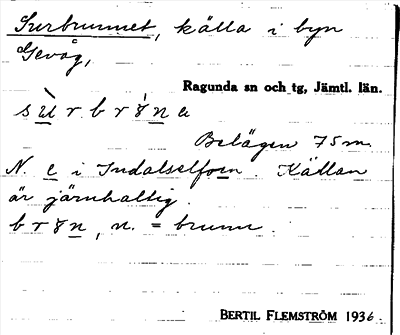 Surbrunnet, källa i byn
Gevåg,
Ragunda sn och tg, Jämtl. län.
Belägen 75 m.
N. e i Indalselfven. Källan
är järnhaltig.
n. = brunn.
BERTIL FLEMSTRÖM 1936.